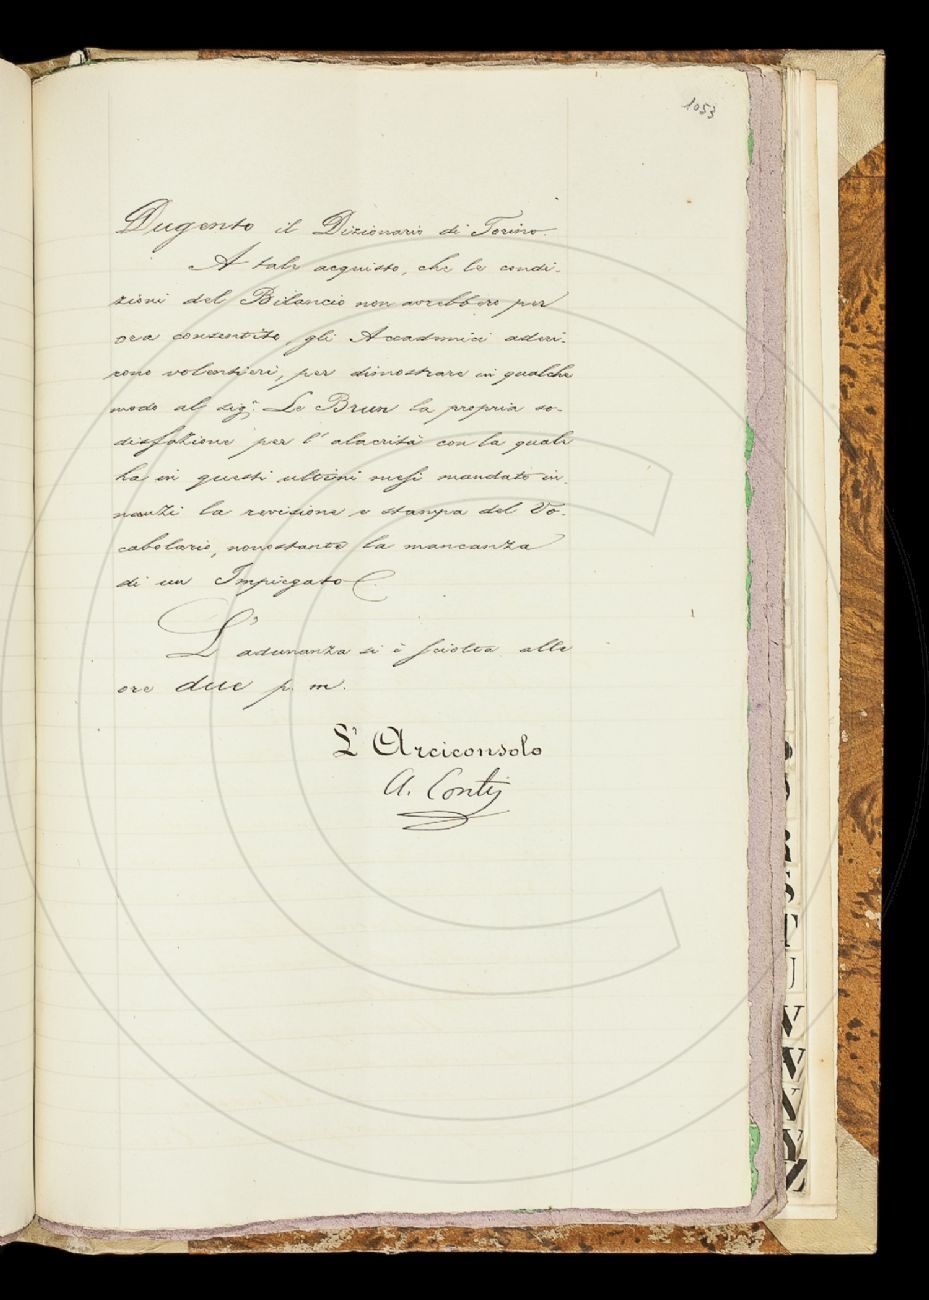 1053
Dugento il Dizionario di Torino.
A tale acquisto, che le condi-
zioni del Bilancio non avrebbero per
ora consentito, gli Accademici aderi-
rono volentieri, per dimostrare in qualche
modo al sig.r Le Brun la propria so-
disfazione per l'alacrità con la quale
ha in questi ultimi mesi mandato in-
nanzi la revisione e stampa del Vo-
cabolario, nonostante la mancanza
di un Impiegato.
L'adunanza si è sciolta alle
ore due p. m.
L'Arciconsolo
A. Conti
R
S
T
U
V
V
X
Y
Z